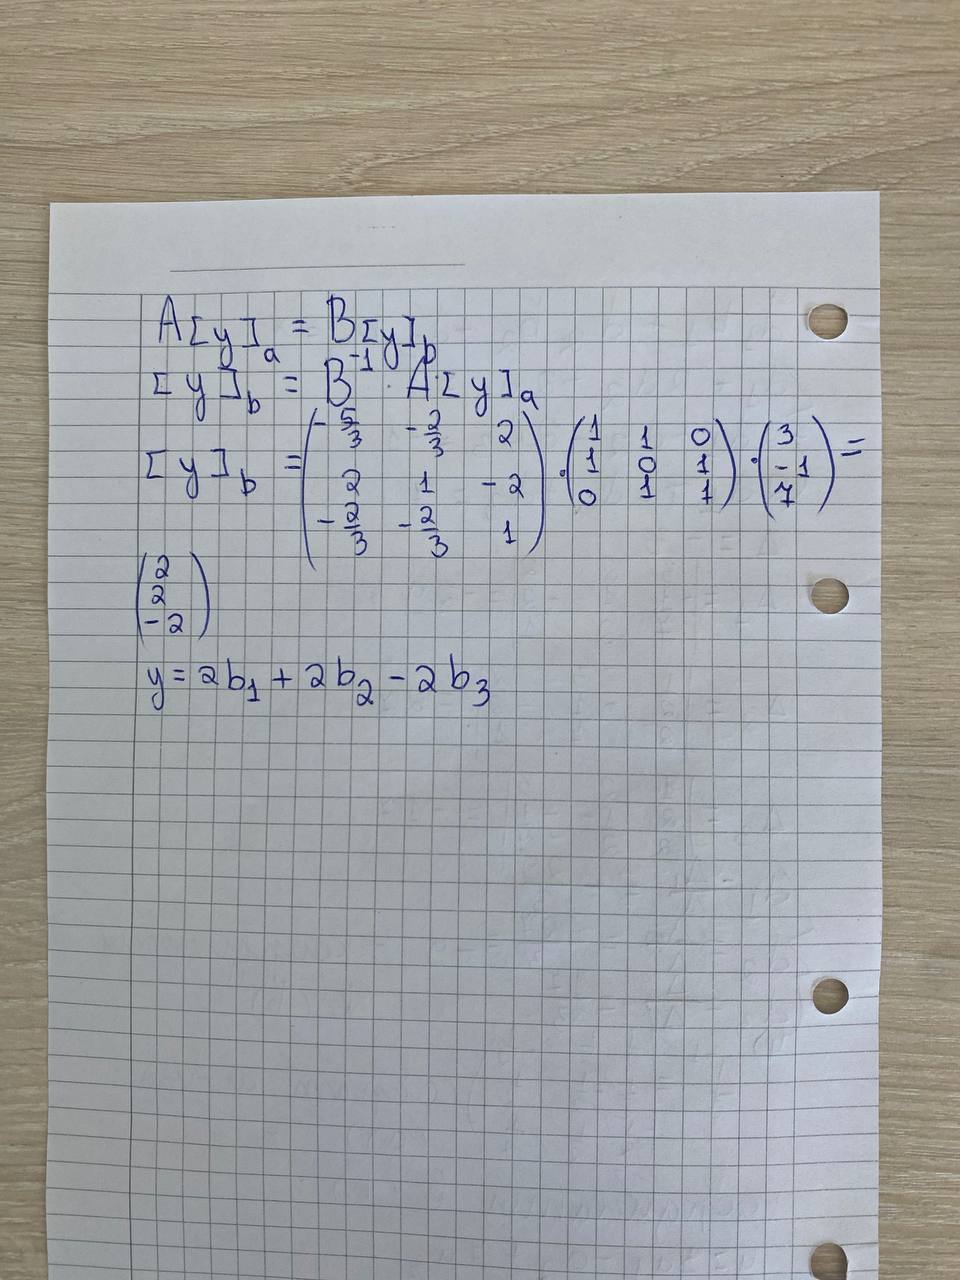 A[y]a = B[y]b
[y]b = B⁻¹ · A[y]a
[y]b = (-5/3 -2/3 2; 2 1 -2; -2/3 -2/3 1) · (1 1 0; 1 0 1; 0 1 1) · (3; -1; 7) =
(2; 2; -2)
y = 2b₁ + 2b₂ - 2b₃